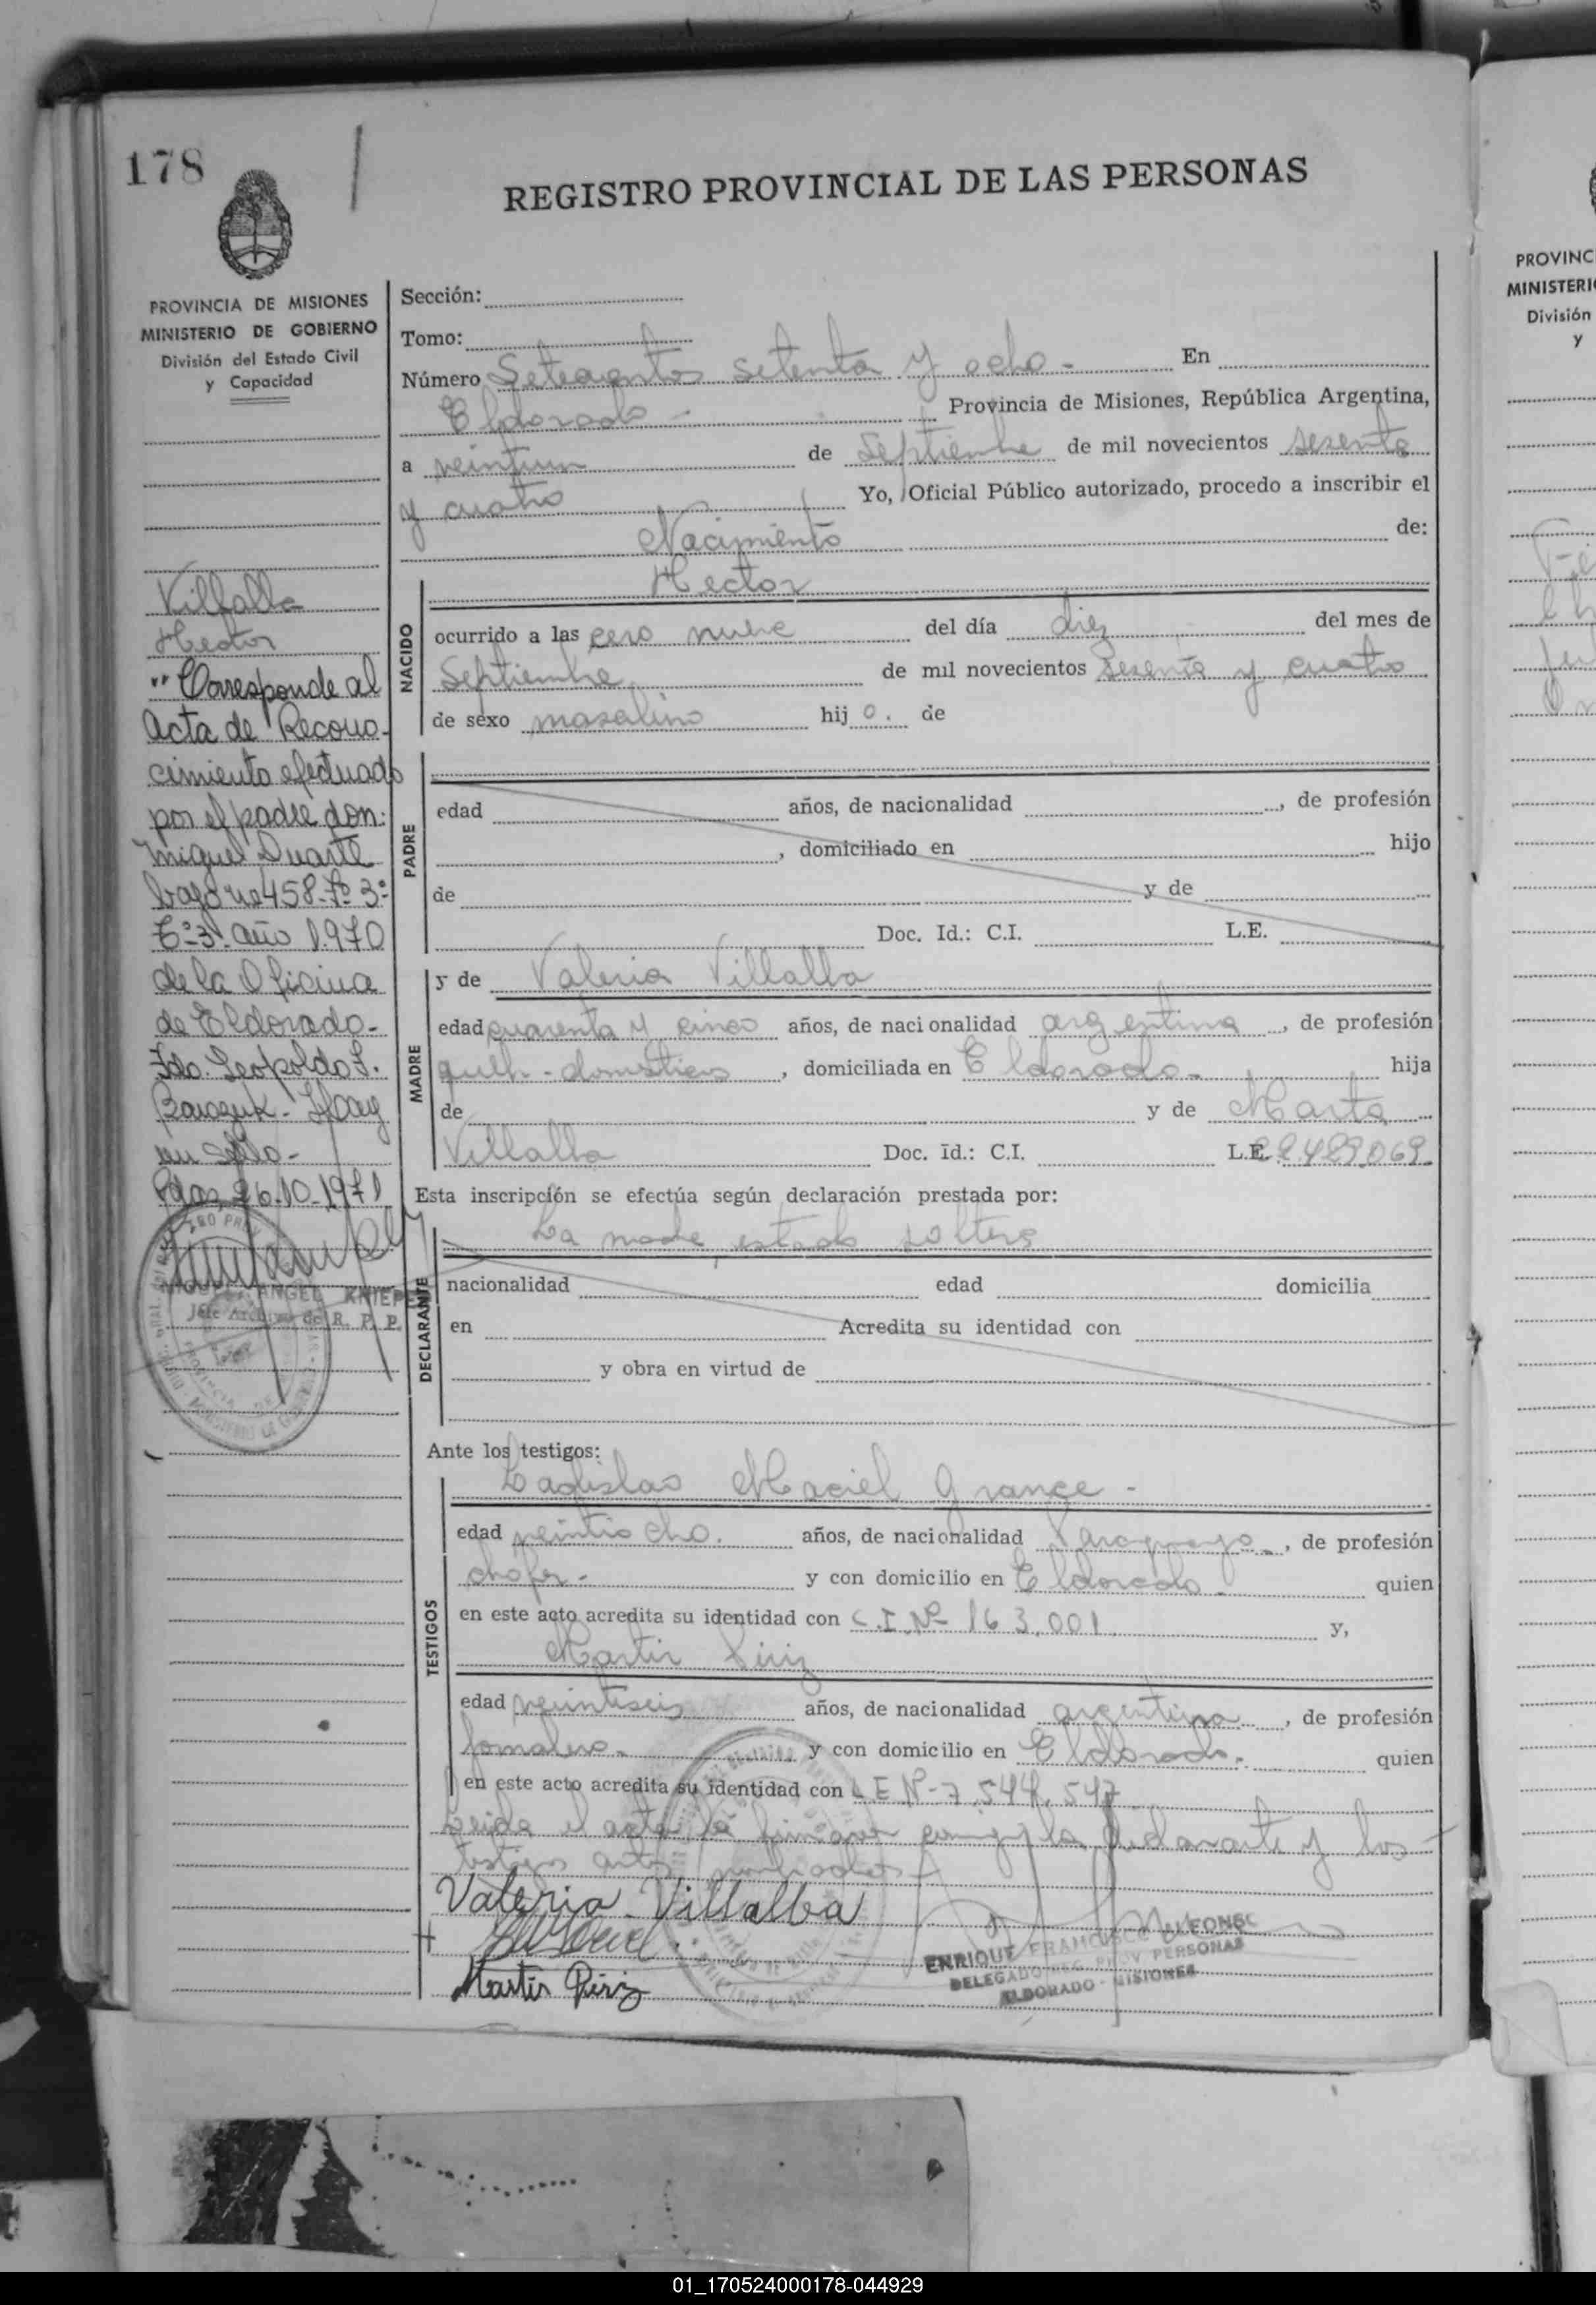 178
REGISTRO PROVINCIAL DE LAS PERSONAS
PROVINCIA DE MISIONES
MINISTERIO DE GOBIERNO
División del Estado Civil
y Capacidad
Sección:
Tomo:
Número Setecientos setenta y ocho - En
Eldorado - Provincia de Misiones, República Argentina,
a veintiun de Septiembre de mil novecientos sesenta
y cuatro Yo, Oficial Público autorizado, procedo a inscribir el
Nacimiento de:
Hector
NACIDO
ocurrido a las cero nueve del día diez del mes de
Septiembre de mil novecientos sesenta y cuatro
de sexo masculino hijo. de
PADRE
edad años, de nacionalidad , de profesión
, domiciliado en hijo
de y de
Doc. Id.: C.I. L.E.
MADRE
y de Valeria Villalba
edad cuarenta y cinco años, de nacionalidad argentina , de profesión
queh - domesticos , domiciliada en Eldorado - hija
de y de Marta
Villalba Doc. Id.: C.I. L.E. 2.489.069.
Esta inscripción se efectúa según declaración prestada por:
La madre, estado soltera
DECLARANTE
nacionalidad edad domicilia
en Acredita su identidad con
y obra en virtud de
Ante los testigos:
TESTIGOS
Ladislao Maciel Grance -
edad veintiocho. años, de nacionalidad Paraguayo , de profesión
chofer - y con domicilio en Eldorado - quien
en este acto acredita su identidad con C.I. Nº 163.001. y,
Martir Piriz
edad veintiseis años, de nacionalidad argentina , de profesión
Jornalero - y con domicilio en Eldorado. quien
en este acto acredita su identidad con L E Nº - 7.544.547
Leida el acta la firman conmigo la declarante y los
testigos antes nombrados -
Valeria Villalba
Martir Piriz
ENRIQUE FRANCISCO ALFONSO
DELEGADO REG. PROV. PERSONAS
ELDORADO - MISIONES
Villalba
Hector
"Corresponde al
Acta de Recono-
cimiento efectuado
por el padre don:
Miguel Duarte
bajo nº 458 - Fº 3:
Tº 3º. año 1.970
de la Oficina
de Eldorado -
Fdo. Leopoldo S.
Hay
un sello -
Pdas, 26.10.1971
MIGUEL ANGEL KNIEPE
Jefe Archivo de R. P. P.
PROVINC
MINISTERI
División
y
01_170524000178-044929